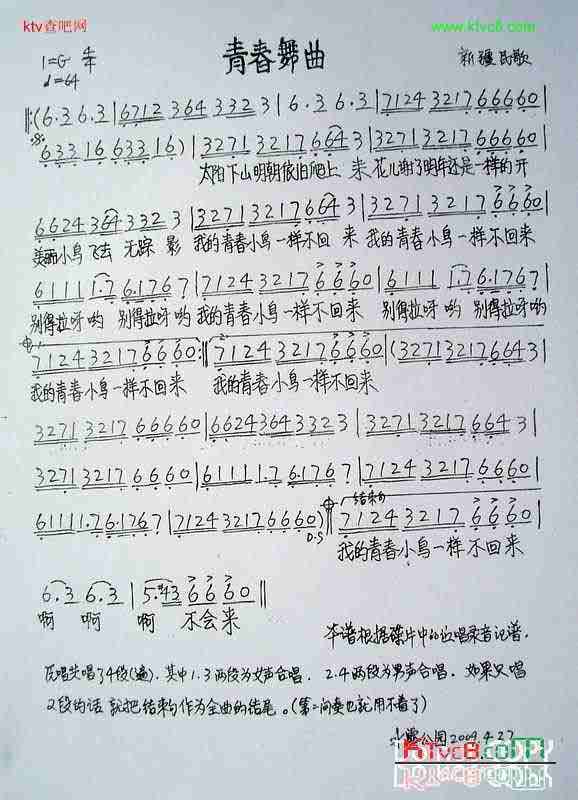 ktv查吧网
www.ktvc8.com
青春舞曲
1=G 4/4
新疆民歌
♩=64
‖:(6·3 6·3|6712 364 332 3|6·3 6·3|7124 3217 66660|
633 16 633 16)|3271 3217 664 3|3271 3217 66660|
太阳下山明朝依旧爬上 来 花儿谢了明年还是一样的开
6624 364 332 3|3271 3217 664 3|3271 3217 6660|
美丽小鸟飞去 无踪 影 我的青春小鸟一样不回 来 我的青春小鸟一样不回来
61111 1·7 6·176 7|7124 3217 6660|61111 1·7 6·176 7|
别得拉呀哟 别得拉呀哟 我的青春小鸟一样不回来 别得拉呀哟 别得拉呀哟
7124 3217 6660:‖7124 3217 6660|(3271 3217 664 3|
我的青春小鸟一样不回来 我的青春小鸟一样不回来
3271 3217 66660|6624 364 332 3|3271 3217 664 3|
3271 3217 6660|61111 1·7 6·176 7|7124 3217 6660|
结束句
61111 1·7 6·176 7|7124 3217 6660)‖7124 3217 6660|
D.S
我的青春小鸟一样不回来
6·3 6·3|5·43 6660‖
啊 啊 啊 不会来
本谱根据碟片中的演唱录音记谱.
唱共唱了4段(遍). 其中1.3两段为女声合唱. 2.4两段为男声合唱. 如果只唱
2段的话 就把结束句作为全曲的结尾。(第二间奏也就用不着了)
公园2009.4.27
KTvc8.COM